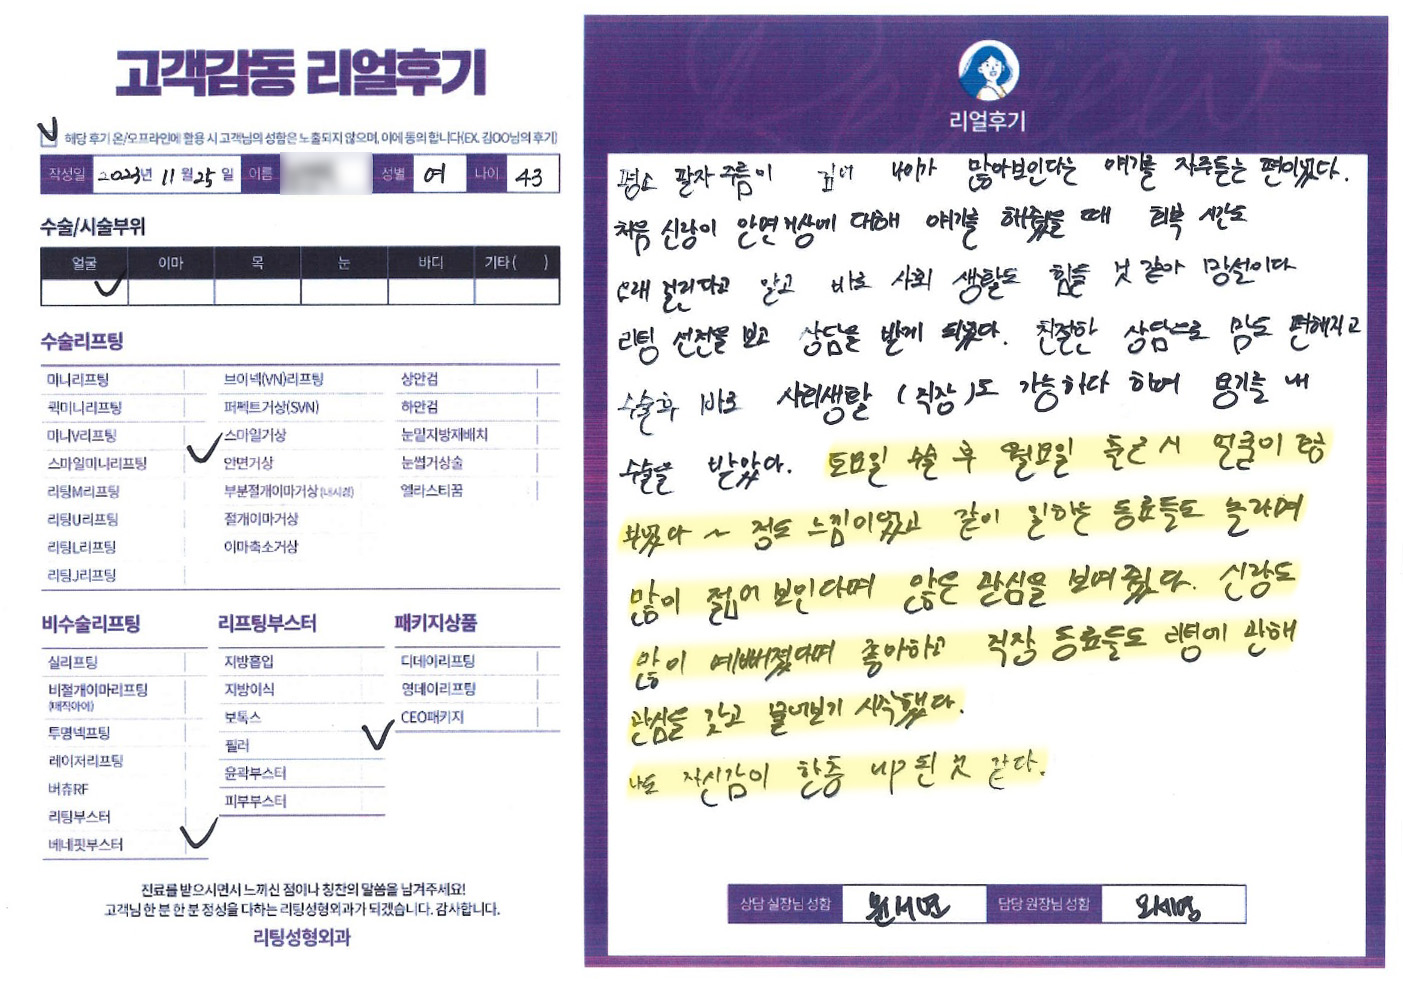 고객감동 리얼후기
해당 후기 온/오프라인에 활용 시 고객님의 성함은 노출되지 않으며, 이에 동의 합니다(EX. 김OO님의 후기)
작성일 2023년 11월 25일 이름 성별 여 나이 43
수술/시술부위
얼굴 이마 목 눈 바디 기타 ( )
수술리프팅
미니리프팅 브이넥(VN)리프팅 상안검
퀵미니리프팅 퍼펙트거상(SVN) 하안검
미니V리프팅 스마일거상 눈밑지방재배치
스마일미니리프팅 안면거상 눈썹거상술
리팅M리프팅 부분절개이마거상(내시경) 엘라스티꿈
리팅U리프팅 절개이마거상
리팅L리프팅 이마축소거상
리팅J리프팅
비수술리프팅 리프팅부스터 패키지상품
실리프팅 지방흡입 디데이리프팅
비절개이마리프팅 지방이식 명데이리프팅
(매직아이) 보톡스 CEO패키지
투명넥프팅 필러
레이저리프팅 윤곽부스터
버츄RF 피부부스터
리팅부스터
베네핏부스터
진료를 받으시면서 느끼신 점이나 칭찬의 말씀을 남겨주세요!
고객님 한 분 한 분 정성을 다하는 리팅성형외과가 되겠습니다. 감사합니다.
리팅성형외과
리얼후기
평소 팔자 주름이 깊어 나이가 많아보인다는 얘기를 자주듣는 편이었다.
처음 신랑이 안면거상에 대해 얘기를 해줬을 때 회복 시간도
오래 걸린다고 알고 바로 사회 생활도 힘들 것 같아 망설이다
리팅 선전을 보고 상담을 받게 되었다. 친절한 상담으로 맘도 편해지고
수술후 바로 사회생활 (직장)도 가능하다 하여 용기를 내
수술을 받았다. 토요일 수술 후 월요일 출근 시 얼굴이 조금
부었다 ~ 정도 느낌이었고 같이 일하는 동료들도 놀라며
많이 젊어 보인다며 많은 관심을 보여줬다. 신랑도
많이 예뻐졌다며 좋아하고 직장 동료들도 리팅에 관해
관심을 갖고 물어보기 시작했다.
나도 자신감이 한층 up 된 것 같다.
상담 실장님 성함 담당 원장님 성함